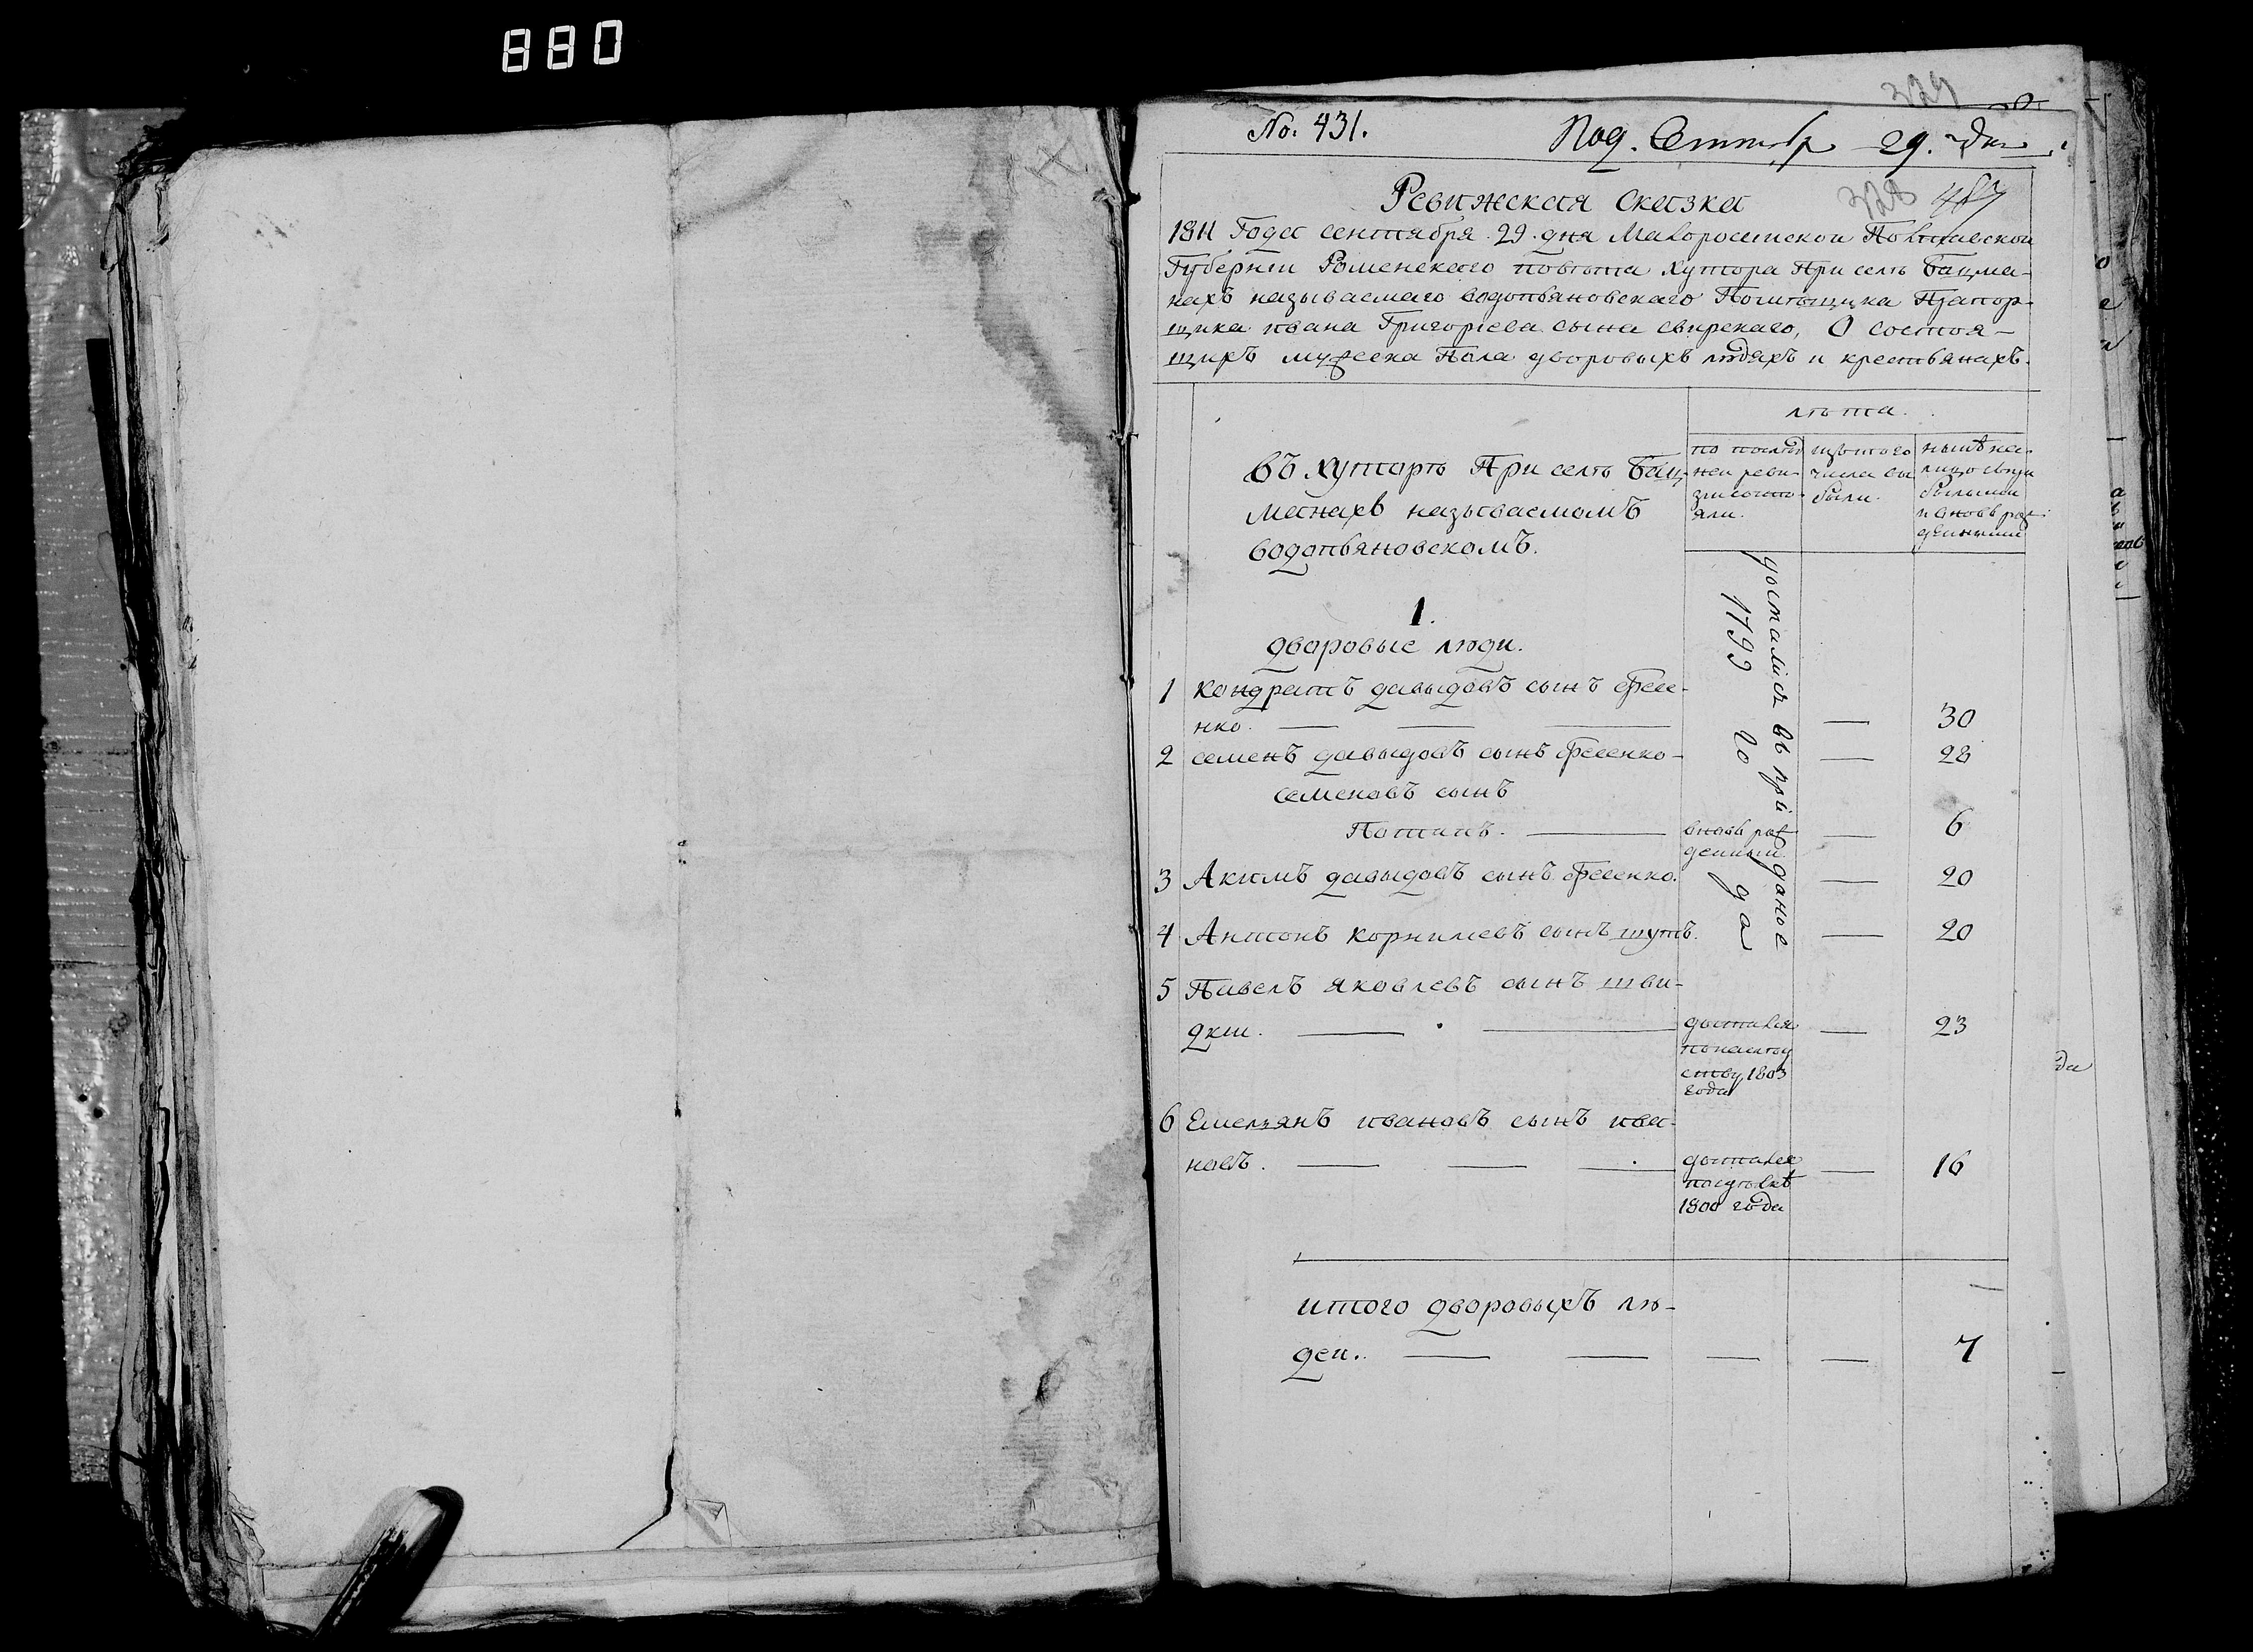 880
329
No. 431.
Под. Сентябр 29. дня
328
Ревижская сказка
1811 Года сентября 29. дня Малоросинскои Полтавскои
Губернии Роменскаго повѣта хутора При селѣ Бацма-
нахъ называемаго водопьяновскаго Помѣщика Прапор-
щика ивана Григорiева сына свирскаго, О состоя-
щихъ мужеска Пола дворовыхъ людяхъ и крестьянахъ.
лѣта.
въ хуторѣ При селѣ Бац-
манахъ называемомъ
водопьяновскомъ.
по послѣд
неи реви-
зии состо-
яли.
изъ того
числа вы
были.
нынѣ на-
лицо
и вновь рож-
денными
1.
дворовые люди.
достались въ приданое
1799 года
1 кондратъ давыдовъ сынъ Фесе-
нко. — — — — 30
2 семенъ давыдовъ сынъ Фесенко — — 28
семеновъ сынъ
Потапъ. — вновь рож
денныи — 6
3 Акимъ давыдовъ сынъ Фесенко. — 20
4 Антонъ корнилiевъ сынъ шутъ. — 20
5 Павелъ яковлевъ сынъ шви-
дкiи. — — достался
по наслед
ству 1803
года — 23
6 Емелiянъ ивановъ сынъ ива-
новъ. — — — достался
по купле
1800 года — 16
итого дворовыхъ лю-
деи. — — — — 7